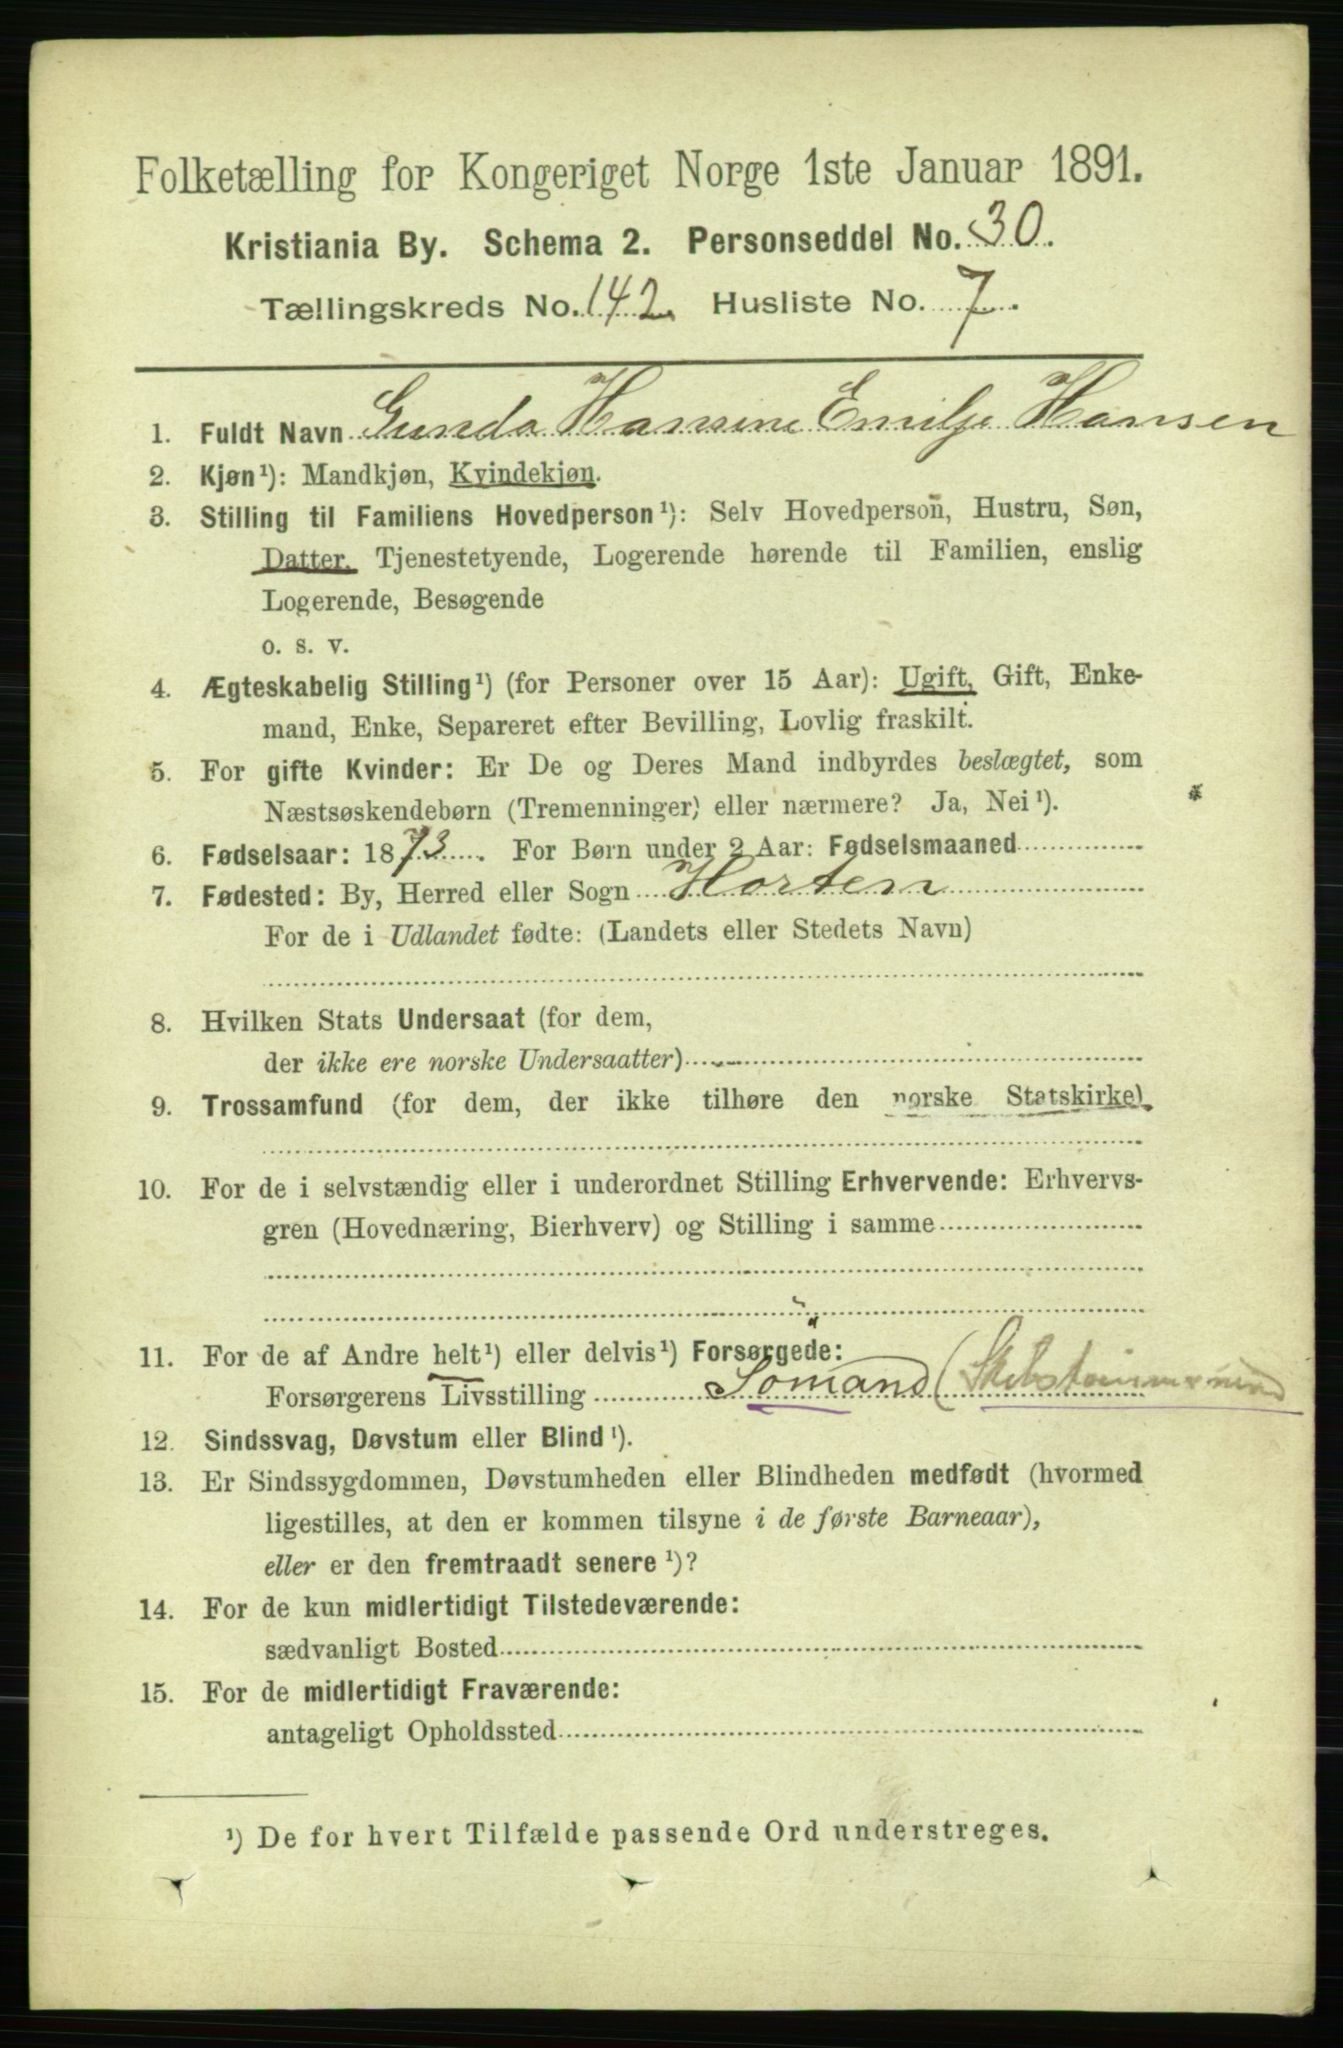 Folketælling for Kongeriget Norge 1ste Januar 1891.
Kristiania By. Schema 2. Personseddel No. 30.
Tællingskreds No. 142. Husliste No. 7.
1. Fuldt Navn Gunda Hansine Emilje Hansen
2. Kjøn¹): Mandkjøn, Kvindekjøn.
3. Stilling til Familiens Hovedperson¹): Selv Hovedperson, Hustru, Søn,
Datter, Tjenestetyende, Logerende hørende til Familien, enslig
Logerende, Besøgende
o. s. v.
4. Ægteskabelig Stilling¹) (for Personer over 15 Aar): Ugift, Gift, Enke-
mand, Enke, Separeret efter Bevilling, Lovlig fraskilt.
5. For gifte Kvinder: Er De og Deres Mand indbyrdes beslægtet, som
Næstsøskendebørn (Tremenninger) eller nærmere? Ja, Nei¹).
6. Fødselsaar: 1873. For Børn under 2 Aar: Fødselsmaaned
7. Fødested: By, Herred eller Sogn Horten
For de i Udlandet fødte: (Landets eller Stedets Navn)
8. Hvilken Stats Undersaat (for dem,
der ikke ere norske Undersaatter)
9. Trossamfund (for dem, der ikke tilhøre den norske Statskirke)
10. For de i selvstændig eller i underordnet Stilling Erhvervende: Erhvervs-
gren (Hovednæring, Bierhverv) og Stilling i samme
11. For de af Andre helt¹) eller delvis¹) Forsørgede:
Forsørgerens Livsstilling Sömand (
12. Sindssvag, Døvstum eller Blind¹).
13. Er Sindssygdommen, Døvstumheden eller Blindheden medfødt (hvormed
ligestilles, at den er kommen tilsyne i de første Barneaar),
eller er den fremtraadt senere¹)?
14. For de kun midlertidigt Tilstedeværende:
sædvanligt Bosted
15. For de midlertidigt Fraværende:
antageligt Opholdssted
¹) De for hvert Tilfælde passende Ord understreges.